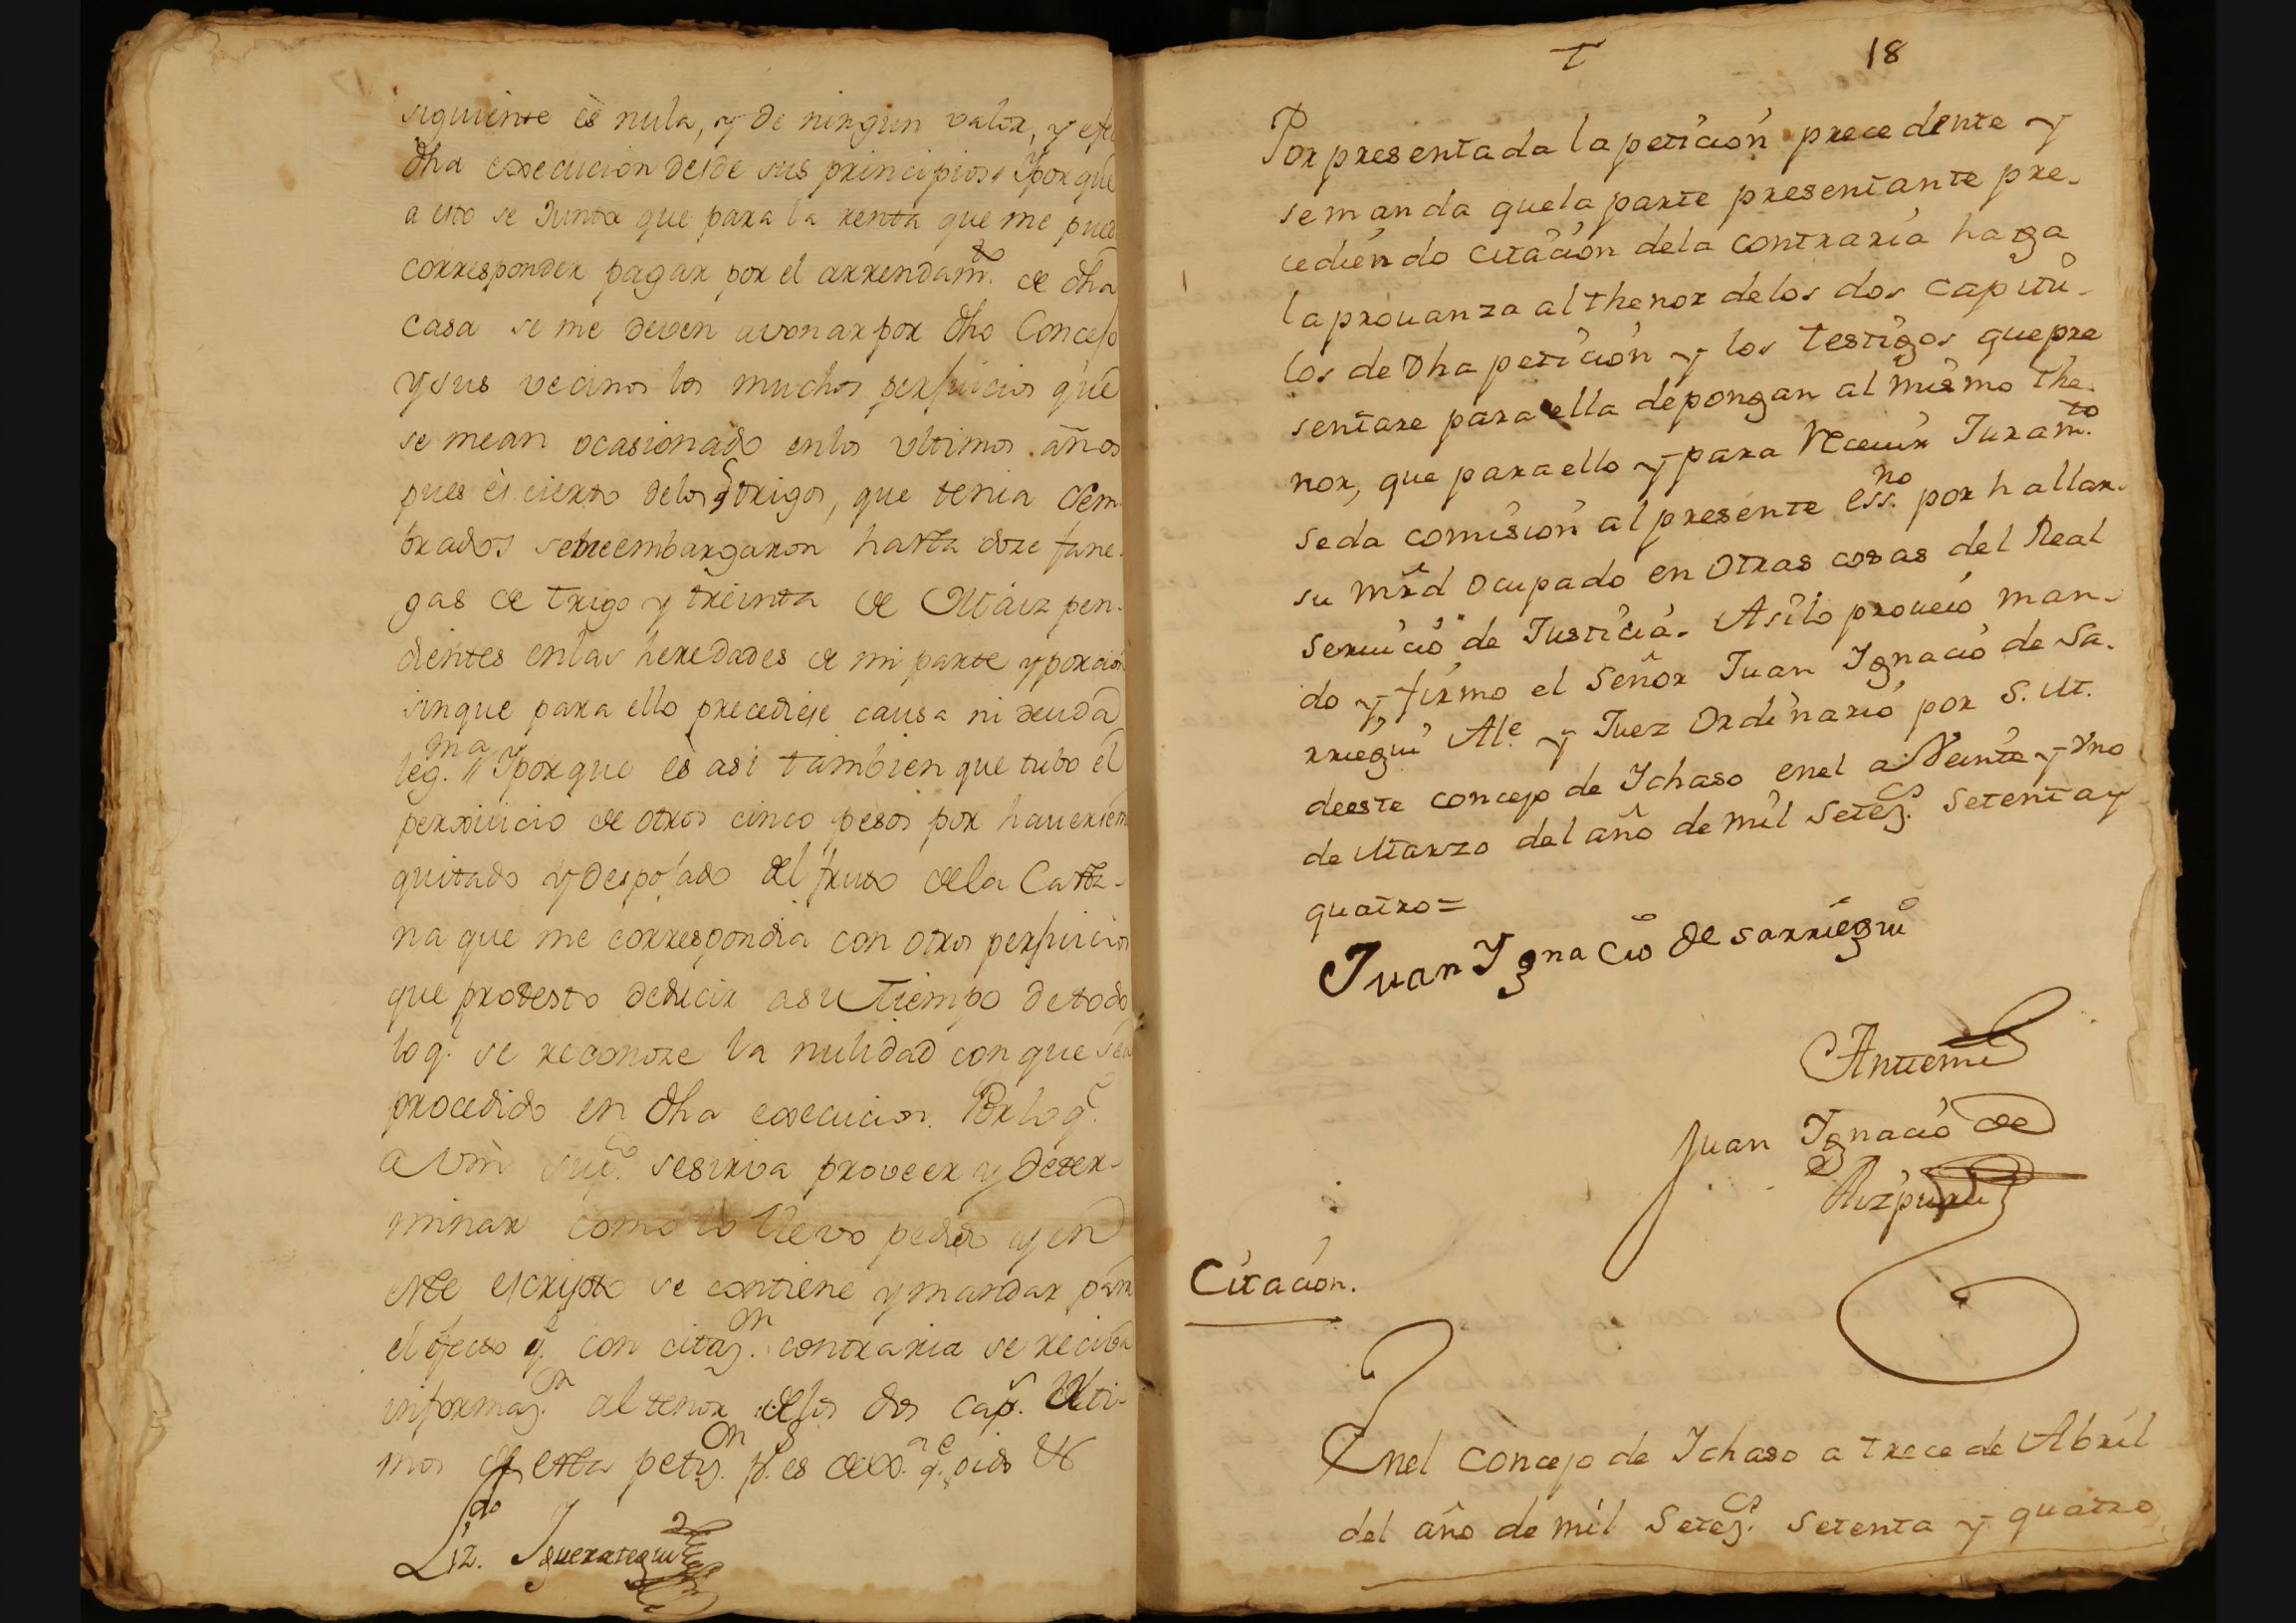 siguiente ès nula, y de ningun valor, y
dha execucion desde sus principios. Yporque
a esto se Junta que para la renta que me pued
corresponder pagar por el arrendam.to de dha
casa se me deven avonar por dho Concejo
y sus vecinos los muchos perjuicios que
se mean ocasionado enlos vltimos años
pues ès cierto delos trigos, que tenia sem
brados seme embargaron hasta doze fane
gas de trigo y treinta de Maiz pen-
dientes enlas heredades de mi parte y porcion
sinque para ello precediese causa ni deuda
leg.ma // Yporque ès asi tambien que tubo el
perxuicio de otros cinco pesos por haverlem
quitado y despojado del fruto dela Casta-
na que me correspondia con otros perjuicios
que protesto deducir asu tiempo de todo
lo q.e se reconoze la nulidad con que sea
procedido en dha execucion. Por lo q.e
a Vm sup.co sesirva proveer y deter-
minar como lo llevo pedido y en
este escripto se contiene y mandar para
el efecto q.e con citaz.on contraria se reciva
informaz.on al tenor delos dos cap.s Ulti-
mos de esta petiz.on p.s es de q.e pido &
Liz.do Yguerategui
18
Por presentada la peticion precedente y
se manda quela parte presentante pre-
cediendo citacion dela contraria haga
la prouanza al thenor delos dos capitu-
los de dha peticion y los testigos quepre
sentare para ella depongan al mismo the-
nor, que para ello y para Receuir Juram.to
seda comision al presente ess.no por hallar-
su mrd ocupado en otras cosas del Real
seruicio de Justicia. Asilo proueió man-
do y firmo el Señor Juan Ygnacio de Sa-
rriegui Al.e y Juez Ordinario por S. M.
deeste concejo de Ichaso enel a Veinte y Vno
de Marzo del año de mil setez.os setenta y
quatro=
Juan Ygnacio de sarriegui
Antemi
Juan Ygnacio de
Aizpuru
Citacion.
Enel concejo de Ichaso a trece de Abril
del año de mil setez.os setenta y quatro